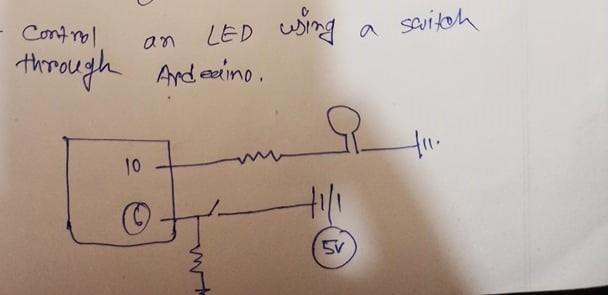 Control an LED using a switch
through Ardeeino.
10
6
5V